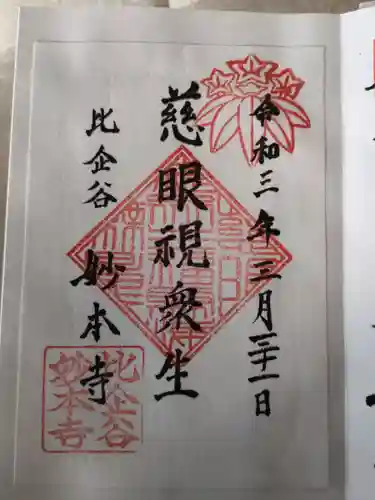 令和三年三月三十一日
慈眼視衆生
比企谷
妙本寺
比企谷
妙本寺